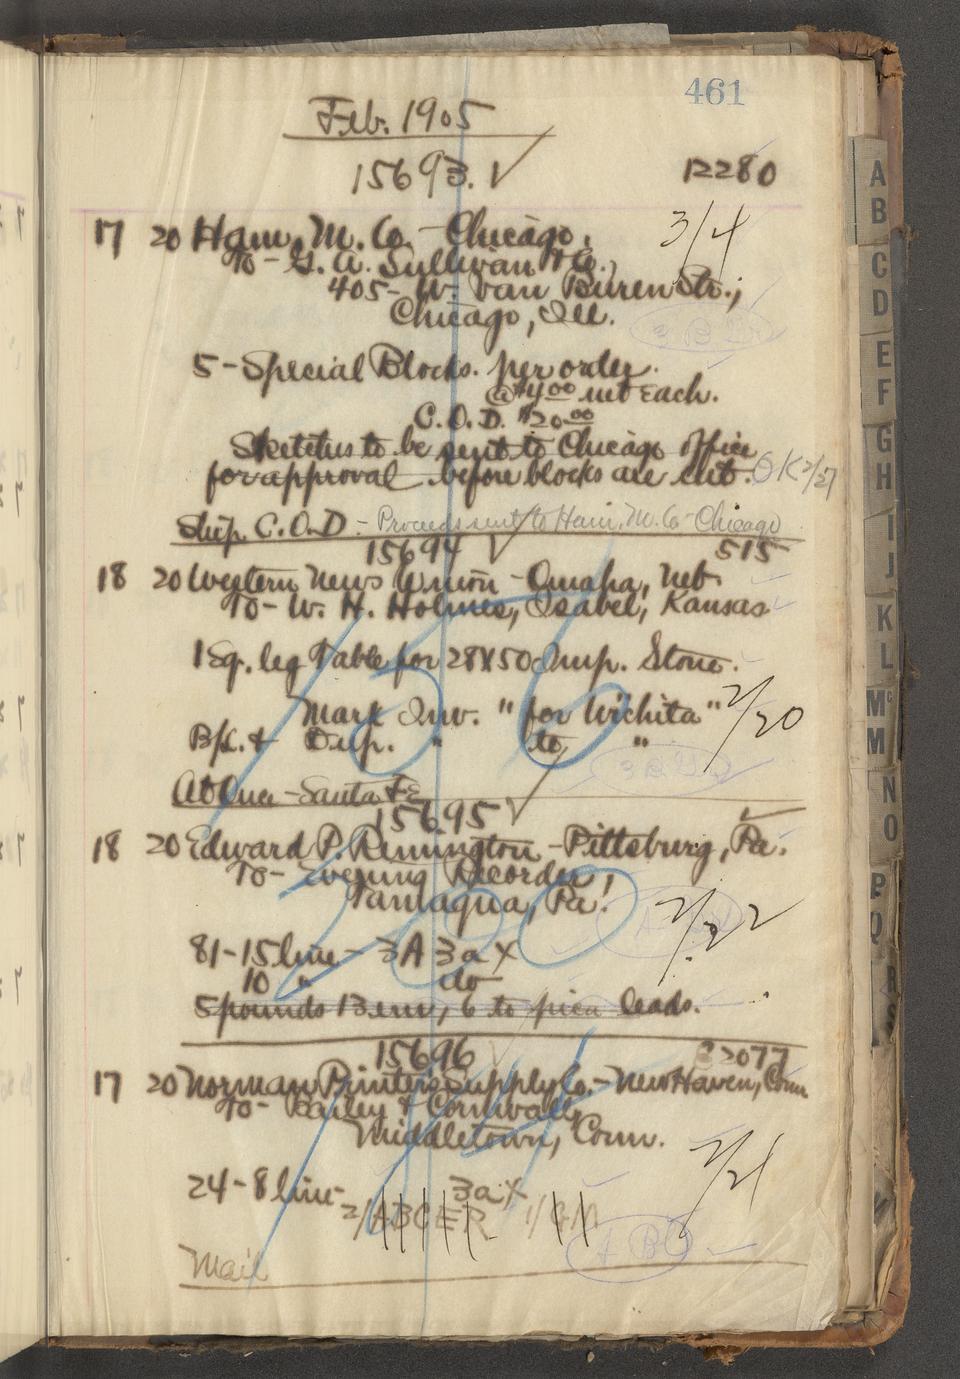 461
Feb. 1905
15693. ✓ 12280
17 20 Ham. M. Co. - Chicago, 3/4
To - G. A. Sullivan & Co.,
405 - W. Van Buren Str.;
Chicago, Ill.
5 - Special Blocks. per order.
@ $4.00 net Each.
C. O. D. $20.00
Sketches to be sent to Chicago office
for approval before blocks are cut. OK 2/27
Ship. C. O. D. - Proceeds sent to Ham. M. Co - Chicago
15694 ✓ 515
18 20 Western News Union - Omaha, Neb.
To - W. H. Holmes, Isabel, Kansas
1 Sq. leg Table for 28X50 Imp. Stone.
Mark Inv. " for Wichita" 2/20
B/L. & Dup. " to "
At Once - Santa Fe
15695 ✓
18 20 Edward P. Remington - Pittsburg, Pa.
To - Evening Recorder,
Tamaqua, Pa. 2/22
81 - 15 line - 3A 3a X
10 " do
5 pounds 13 em, 6 to pica leads.
15696 22077
17 20 Norman Printers Supply Co. - New Haven, Conn
To - Bailey & Cornwall,
Middletown, Conn.
2/21
24 - 8 line - 3a X
2/ABCER 1/GM
Mail
A
B
C
D
E
F
G
H
I
J
K
L
Mc
M
N
O
P
Q
R
S